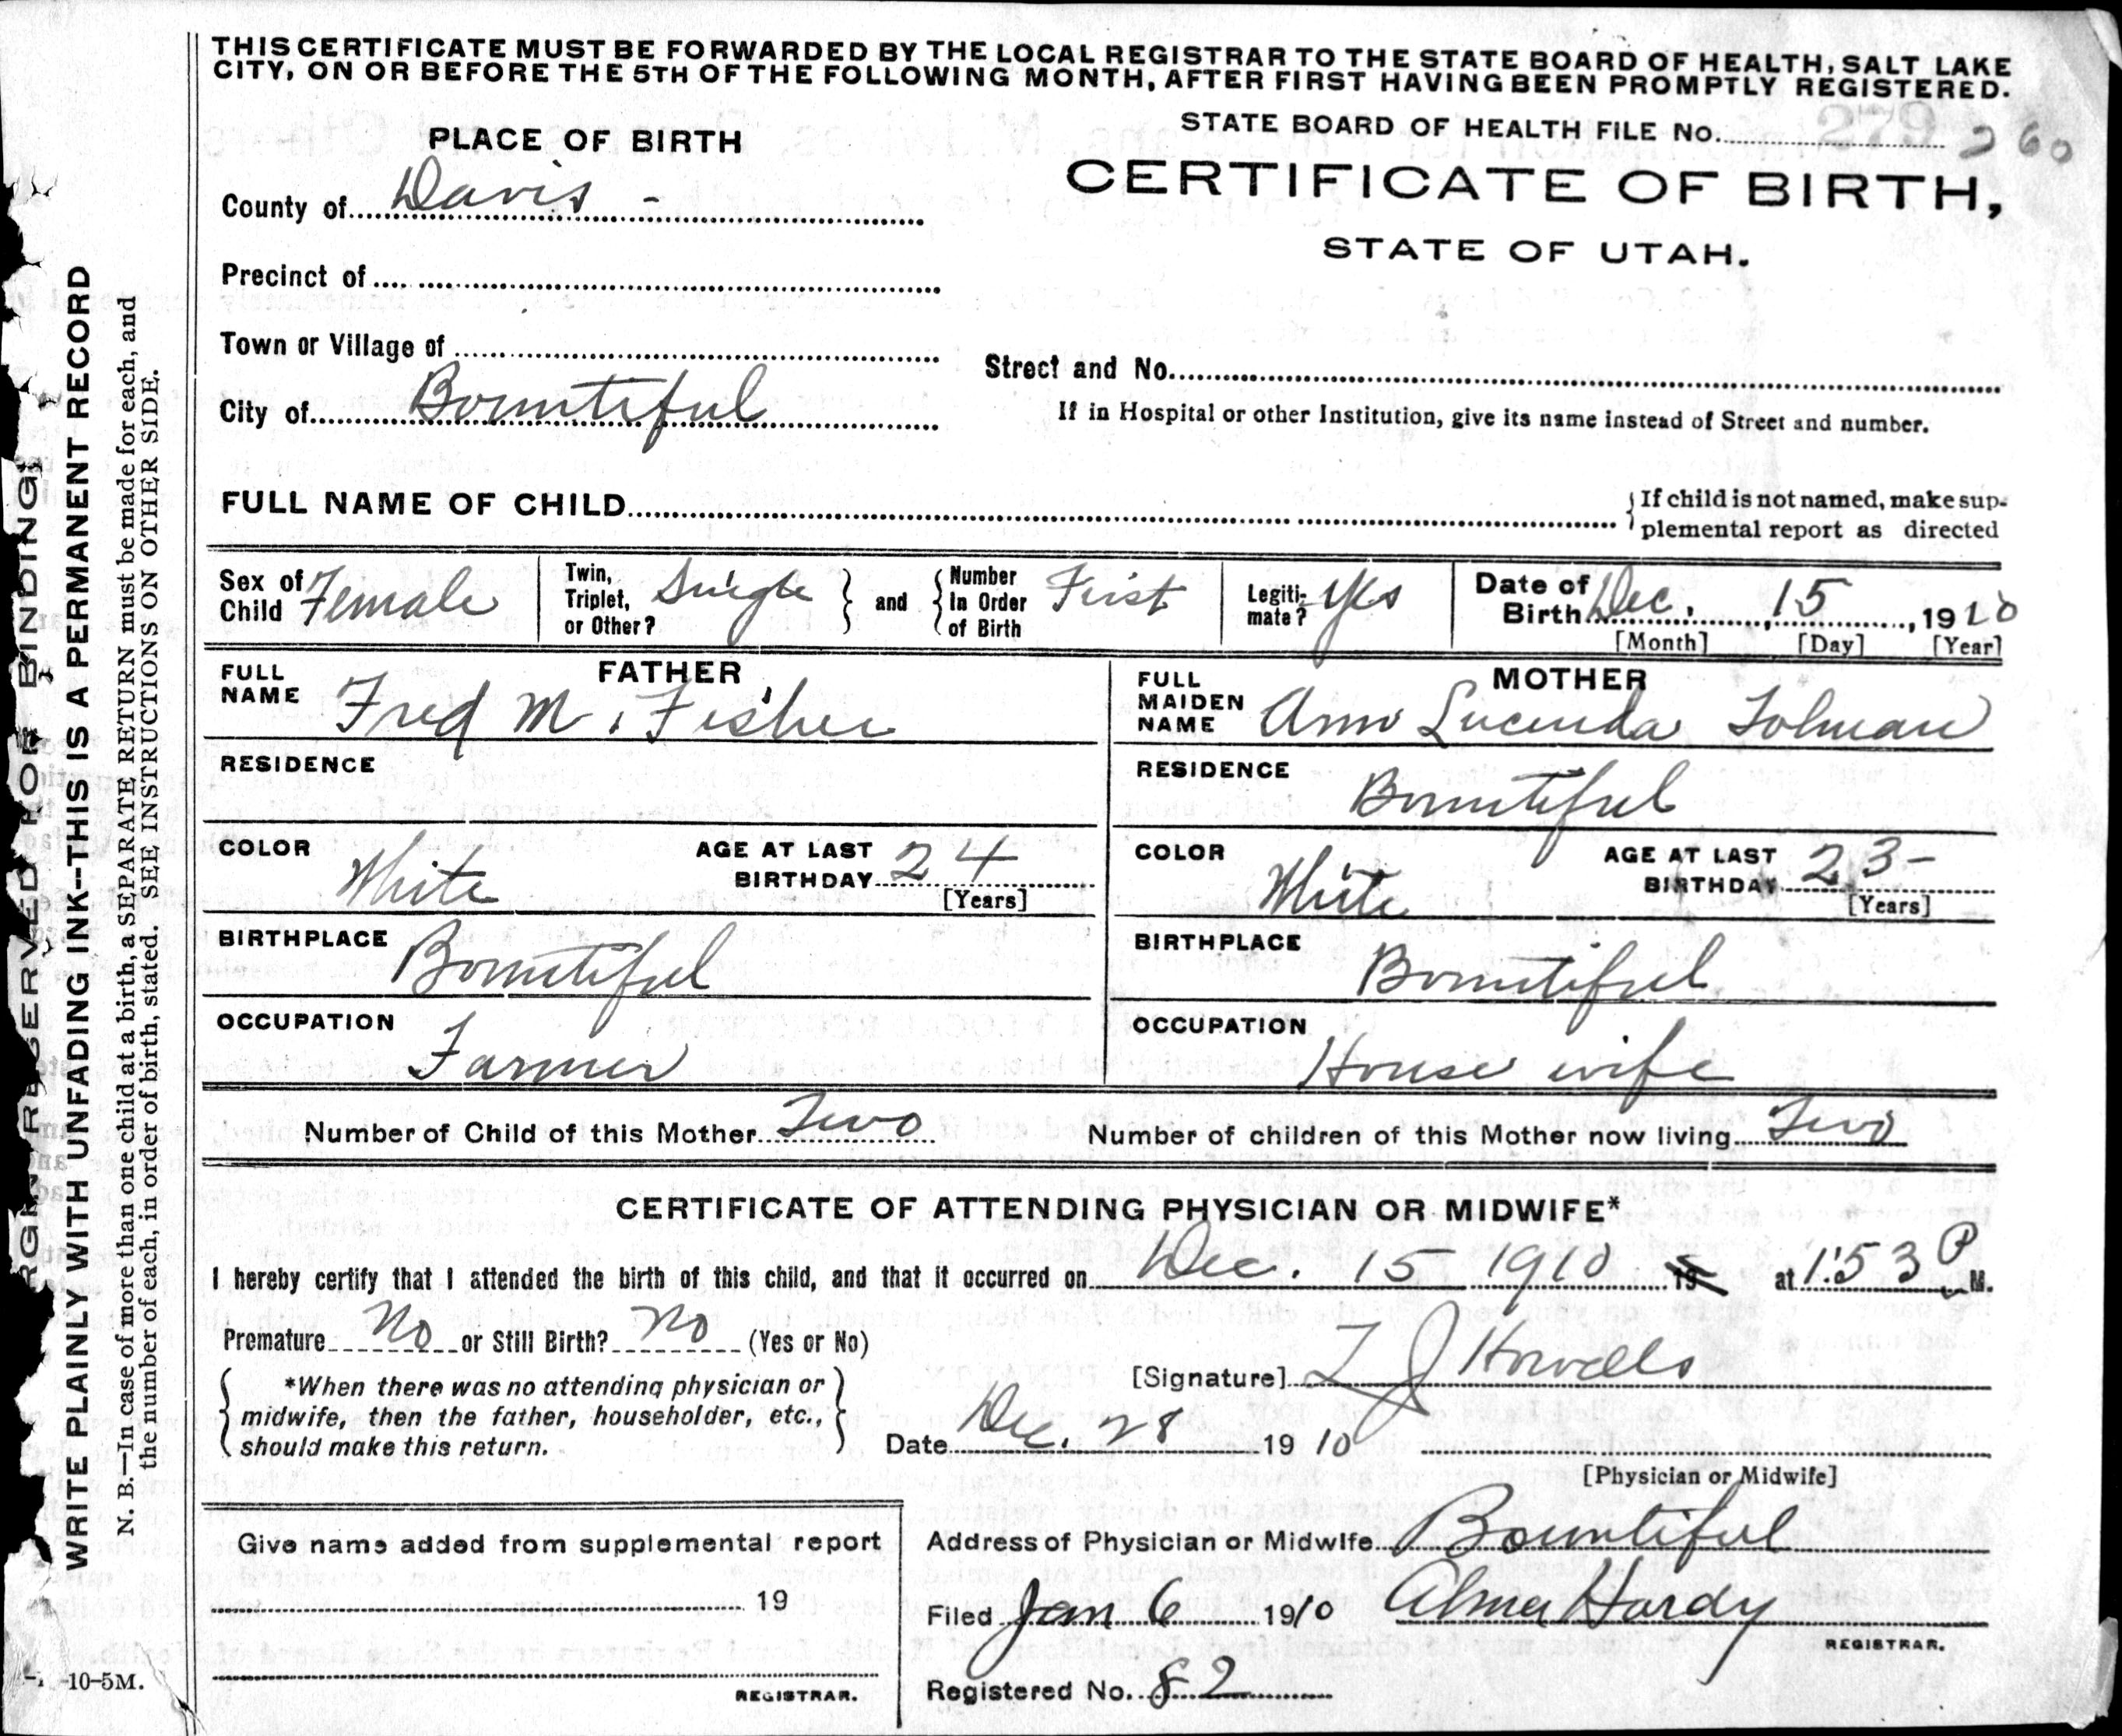 THIS CERTIFICATE MUST BE FORWARDED BY THE LOCAL REGISTRAR TO THE STATE BOARD OF HEALTH, SALT LAKE
CITY, ON OR BEFORE THE 5TH OF THE FOLLOWING MONTH, AFTER FIRST HAVING BEEN PROMPTLY REGISTERED.
STATE BOARD OF HEALTH FILE No. 279 260
PLACE OF BIRTH
CERTIFICATE OF BIRTH,
STATE OF UTAH.
County of Davis -
Precinct of
Town or Village of
Street and No.
City of Bountiful
If in Hospital or other Institution, give its name instead of Street and number.
FULL NAME OF CHILD
{ If child is not named, make sup-
plemental report as directed
Sex of Child Female
Twin, Triplet, or Other? Single } and { Number In Order of Birth First
Legiti- mate? Yes
Date of Birth Dec. 15, 1910
[Month] [Day] [Year]
FATHER
FULL NAME Fred M. Fisher
RESIDENCE
COLOR White AGE AT LAST BIRTHDAY 24
[Years]
BIRTHPLACE Bountiful
OCCUPATION Farmer
MOTHER
FULL MAIDEN NAME Ann Lucinda Tolman
RESIDENCE Bountiful
COLOR White AGE AT LAST BIRTHDAY 23-
[Years]
BIRTHPLACE Bountiful
OCCUPATION House wife
Number of Child of this Mother Two Number of children of this Mother now living Two
CERTIFICATE OF ATTENDING PHYSICIAN OR MIDWIFE*
I hereby certify that I attended the birth of this child, and that it occurred on Dec. 15 1910 19 at 1:53 P M.
Premature No or Still Birth? No (Yes or No)
*When there was no attending physician or
midwife, then the father, householder, etc.,
should make this return.
[Signature] L J Howells
Date Dec. 28 1910
[Physician or Midwife]
Give name added from supplemental report
19
REGISTRAR.
Address of Physician or Midwife Bountiful
Filed Jan 6 1910 Alma Hardy
REGISTRAR.
Registered No. 82
MARGIN RESERVED FOR BINDING
WRITE PLAINLY WITH UNFADING INK--THIS IS A PERMANENT RECORD
N. B.—In case of more than one child at a birth, a SEPARATE RETURN must be made for each, and
the number of each, in order of birth, stated. SEE INSTRUCTIONS ON OTHER SIDE.
-10-5M.